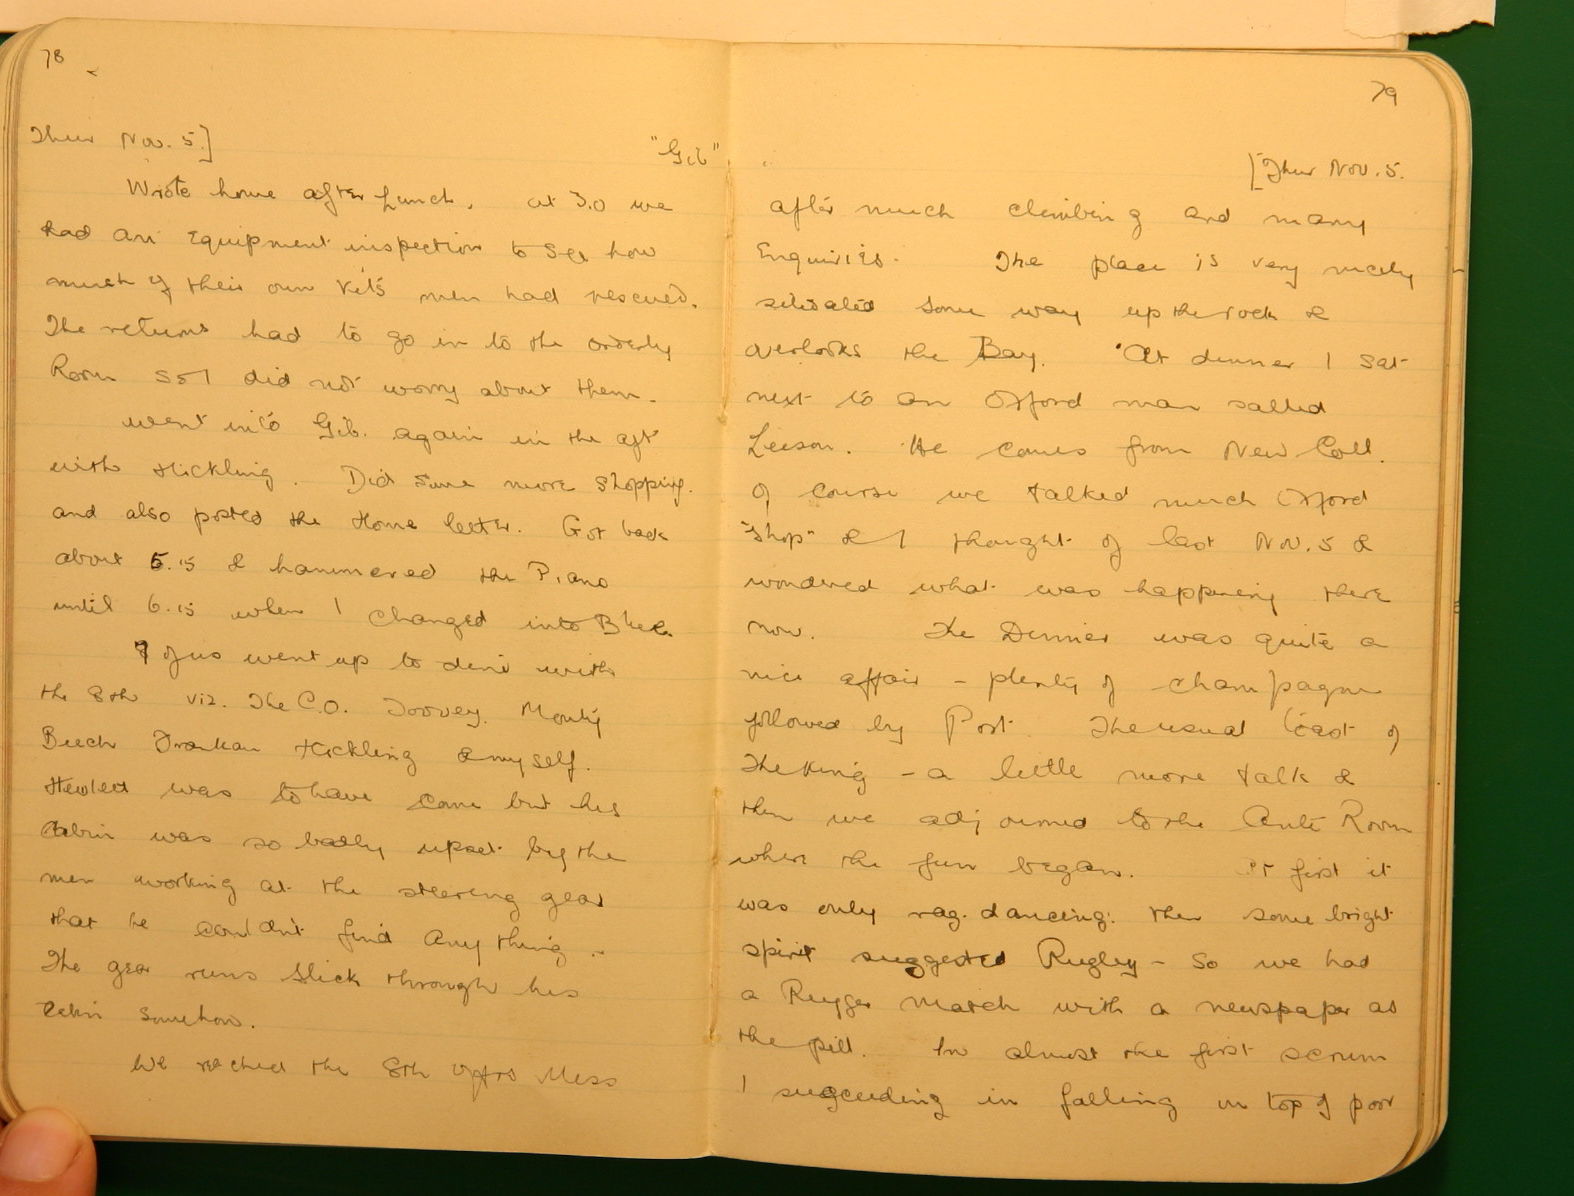 78
Thur Nov. 5.]
"Gib"
Wrote home after Lunch. at 3.0 we
had an Equipment inspection to see how
much of their own kits men had rescued.
The returns had to go in to the orderly
Room so I did not worry about them.
went into Gib. again in the aft
with Hickling. Did some more shopping.
and also posted the Home letter. Got back
about 5.15 & hammered the Piano
until 6.15 when I changed into Blue.
7 of us went up to dine with
the 8th viz. The C.O. Toovey. Monty
Beech Hickling & myself.
Hewlett was to have come but his
Cabin was so badly upset by the
men working at the steering gear
that he couldn't find anything.
The gear runs slick through his
cabin somehow.
We reached the 8th Offrs Mess
79
[Thur Nov. 5.
after much climbing and many
Enquiries. The place is very nicely
situated some way up the rock &
overlooks the Bay. At dinner I sat
next to an Oxford man called
Leeson. He comes from New Coll.
Of course we talked much Oxford
"shop" & I thought of last Nov. 5 &
wondered what was happening there
now. The Dinner was quite a
nice affair - plenty of champagne
followed by Port. The usual toast of
The King - a little more talk &
then we adjourned to the Ante Room
where the fun began. At first it
was only rag. dancing: then some bright
spirit suggested Rugby - So we had
a Rugger match with a newspaper as
the pill. In almost the first scrum
I suceeding in falling on top of poor